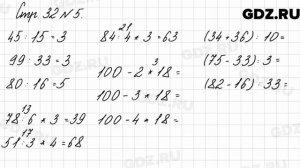 GDZ.RU
Стр. 32 № 5.
45 : 15 = 3
99 : 33 = 3
80 : 16 = 5
13
78 : 6 * 3 = 39
17
51 : 3 * 4 = 68
21
84 : 4 * 3 = 63
2
100 - 2 * 18 =
3
100 - 3 * 18 =
100 - 4 * 18 =
(34 + 36) : 10 =
(75 - 33) : 3 =
(82 - 16) : 33 =
GDZ.RU